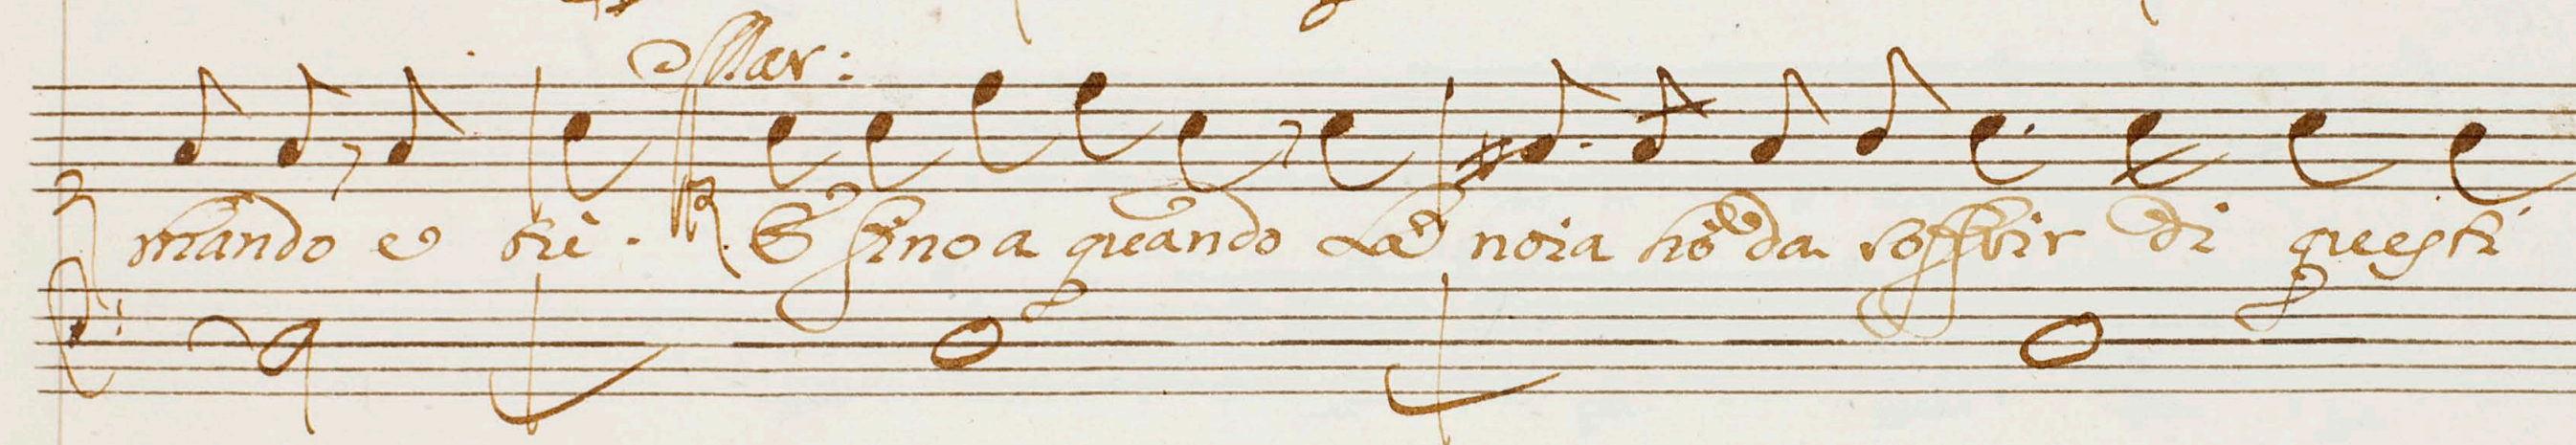 Mar:
mando e tu. E fino a quando La noia ho da soffrir di questi